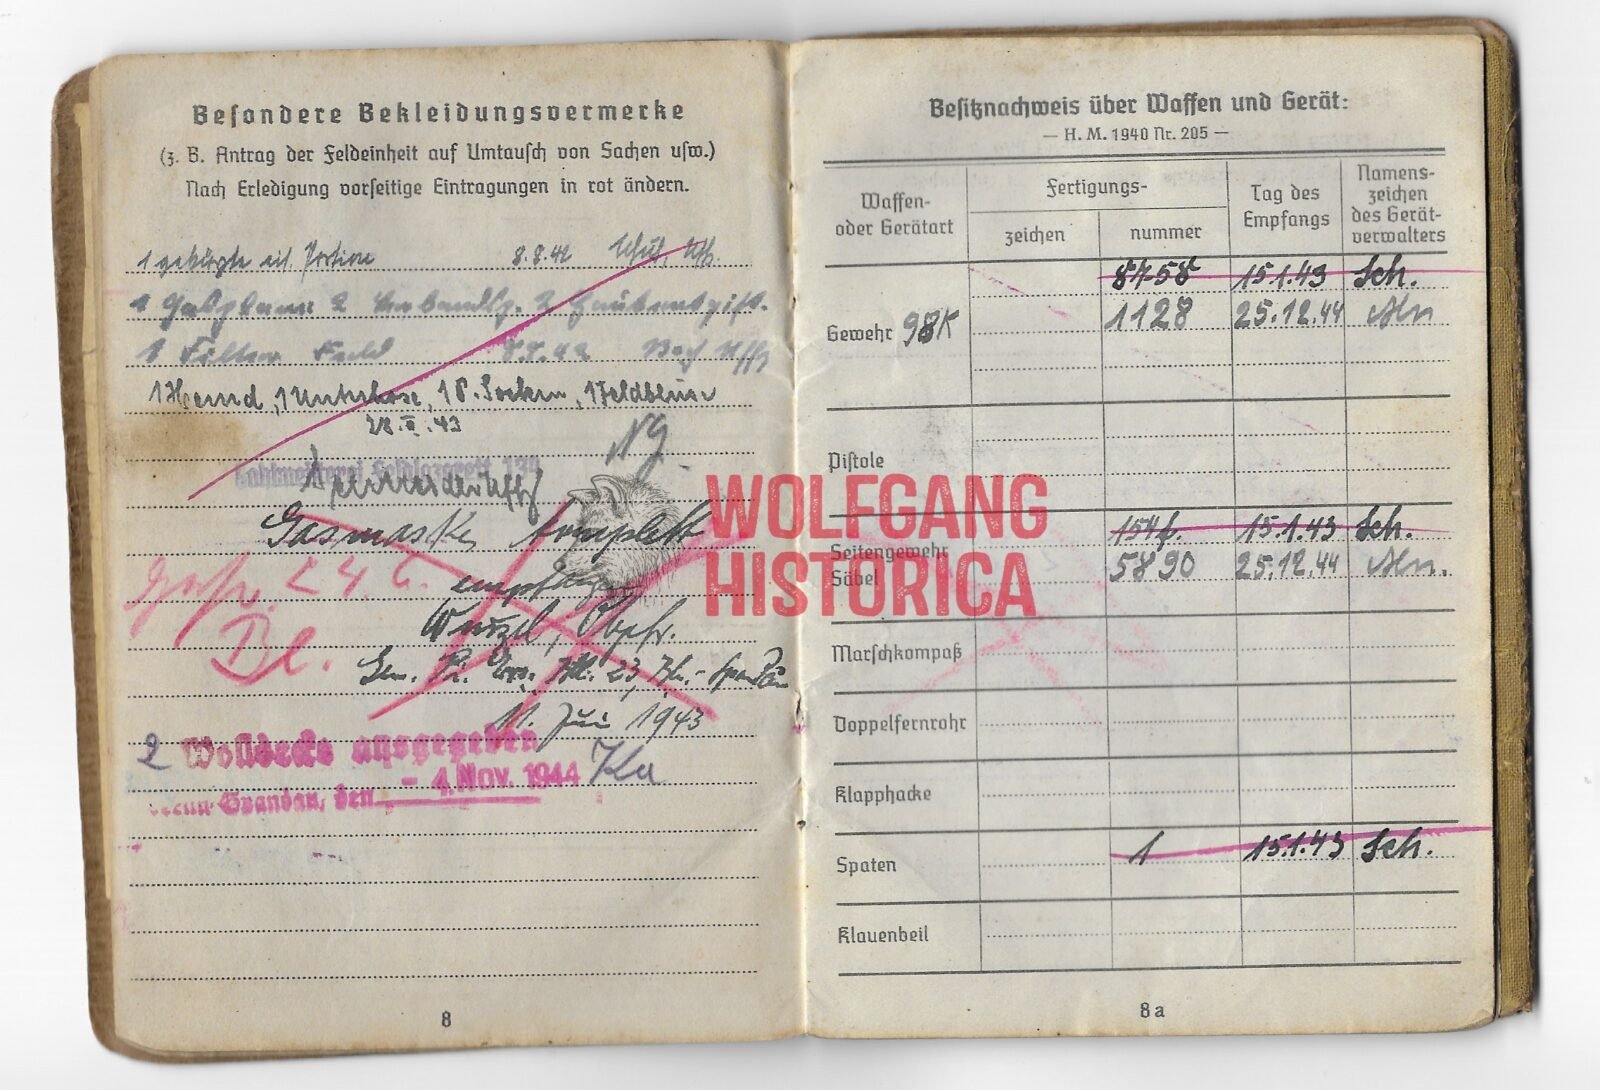 Besondere Bekleidungsvermerke
(z. B. Antrag der Feldeinheit auf Umtausch von Sachen usw.)
Nach Erledigung vorseitige Eintragungen in rot ändern.
1 gekürzte eis. Portion 8.8.42
1 Gasplane 2 Verbandsp. 2
1 Filter
1 Hemd, 1 Unterhose, 1 P. Socken, 1 Feldbluse
28.II.43
Feldlazarett
Gasmaske, komplett
empfangen
Bl.
Wenzel, Obgfr.
11. Juni 1943
2 Wolldecke ausgegeben
Spandau, den - 4. Nov. 1944
8
Besitznachweis über Waffen und Gerät:
— H. M. 1940 Nr. 205 —
Waffen- oder Gerätart
Fertigungs-
zeichen
nummer
Tag des Empfangs
Namens-zeichen des Gerät-verwalters
8758 15.1.43 Sch.
Gewehr 98K 1128 25.12.44
Pistole
15.1.43 Sch.
Seitengewehr
Säbel 5890 25.12.44
Marschkompaß
Doppelfernrohr
Klapphacke
Spaten 1 15.1.43 Sch.
Klauenbeil
8a
WOLFGANG
HISTORICA